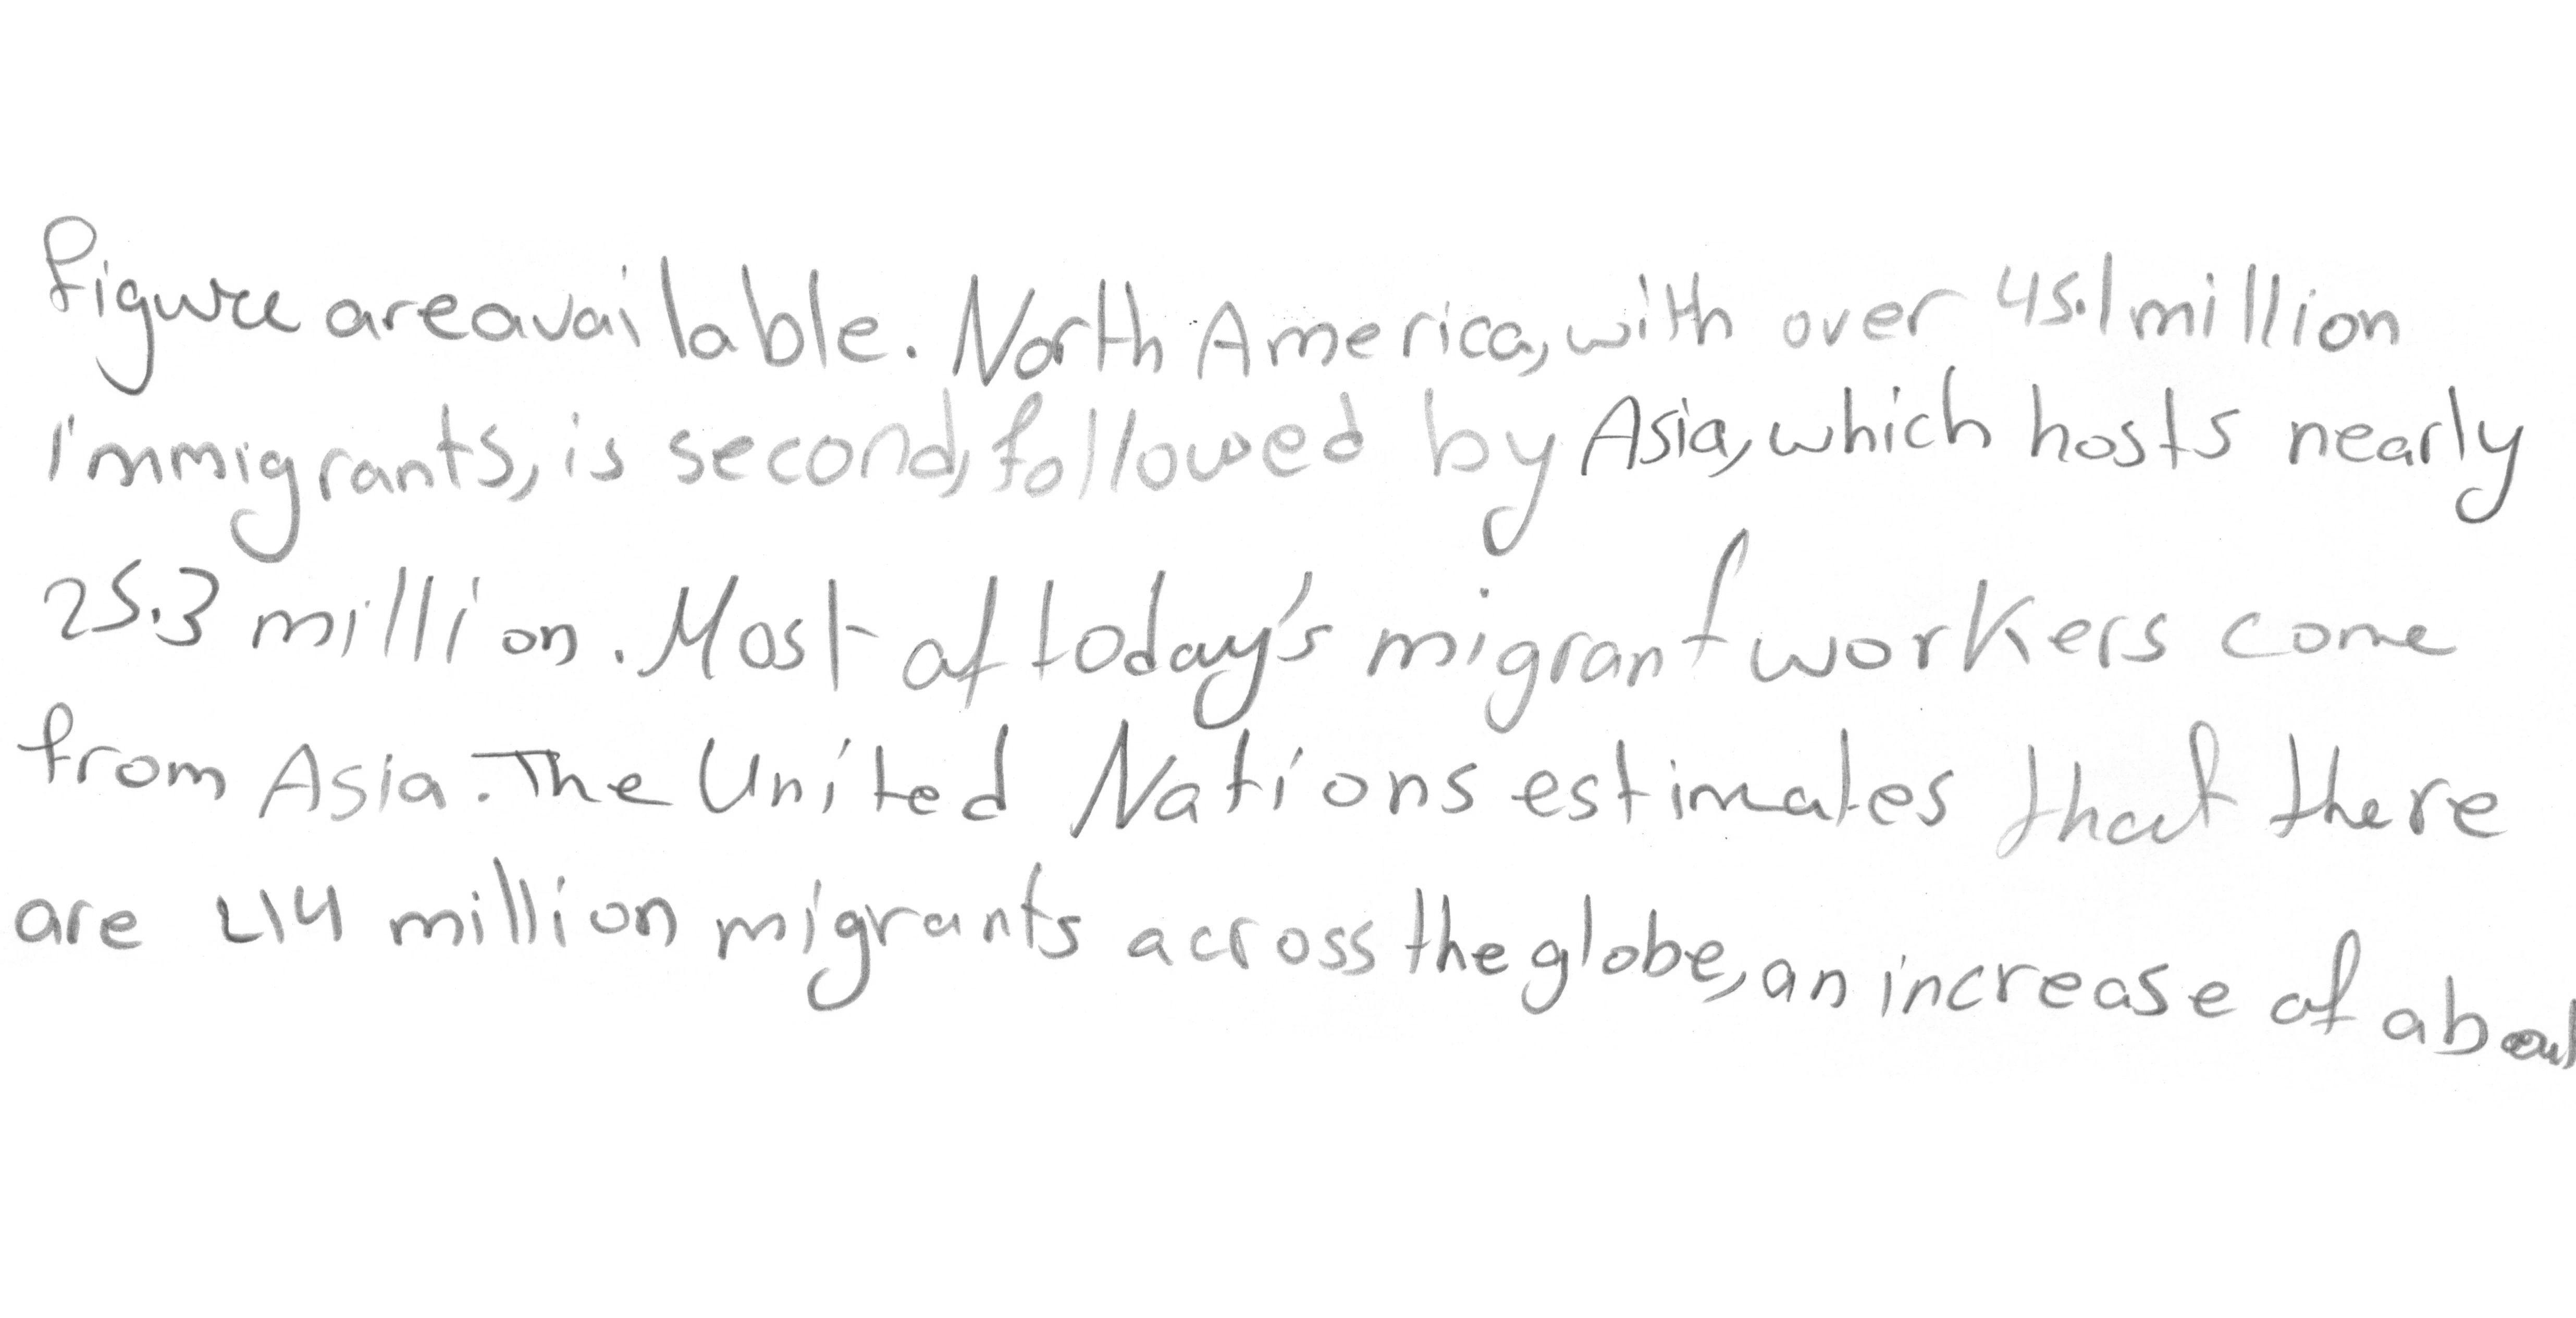 figure are available. North America, with over 45.1 million
immigrants, is second, followed by Asia, which hosts nearly
25.3 million. Most of today's migrant workers come
from Asia. The United Nations estimates that there
are 214 million migrants across the globe, an increase of about